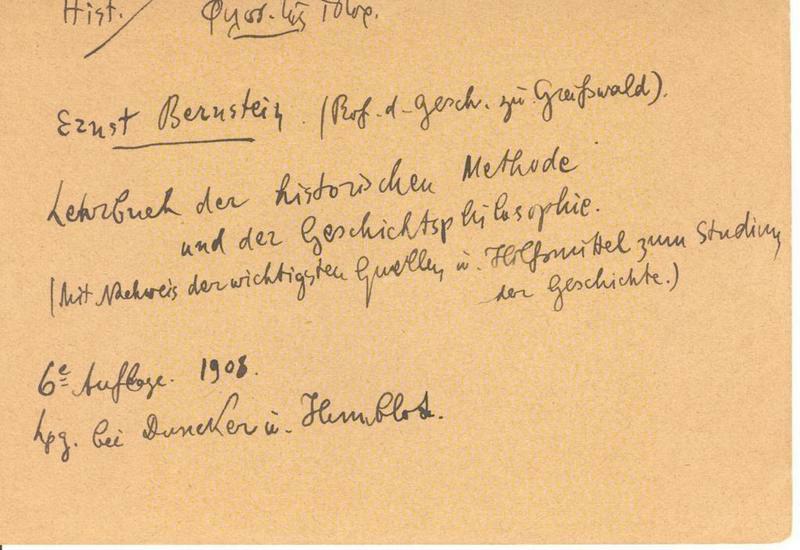 Hist. Φιλοσ. τῆς Ἱστορ.
Ernst Bernstein. (Prof. d. Gesch. zu Greifswald).
Lehrbuch der historischen Methode
und der Geschichtsphilosophie.
(Mit Nachweis der wichtigsten Quellen u. Hilfsmittel zum Studium
der Geschichte.)
6e Auflage. 1908.
Lpg. bei Duncker u. Humblot.